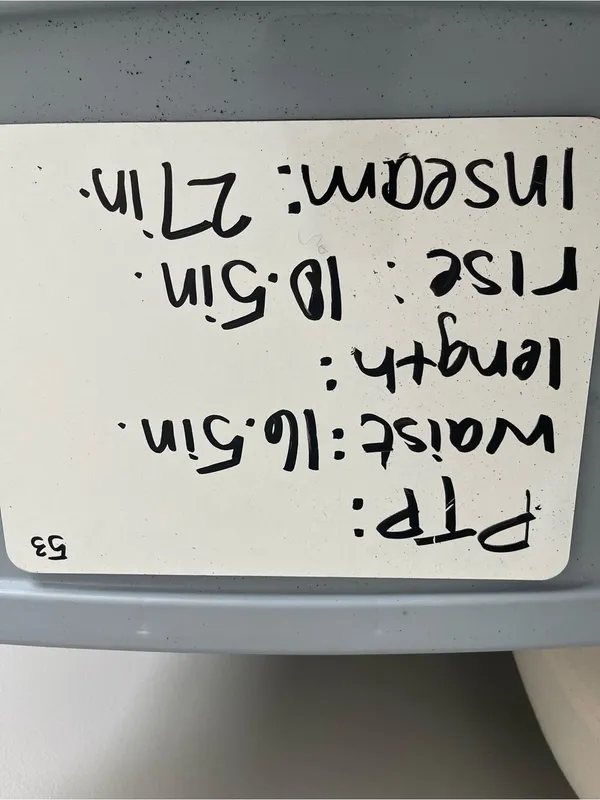 53
PTP:
waist: 16.5in.
length:
rise: 10.5in.
Inseam: 27in.